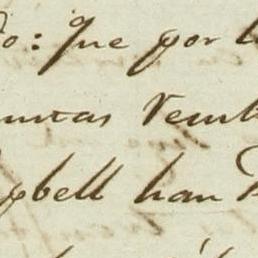 o: Que por l
untas Veint
pbell han